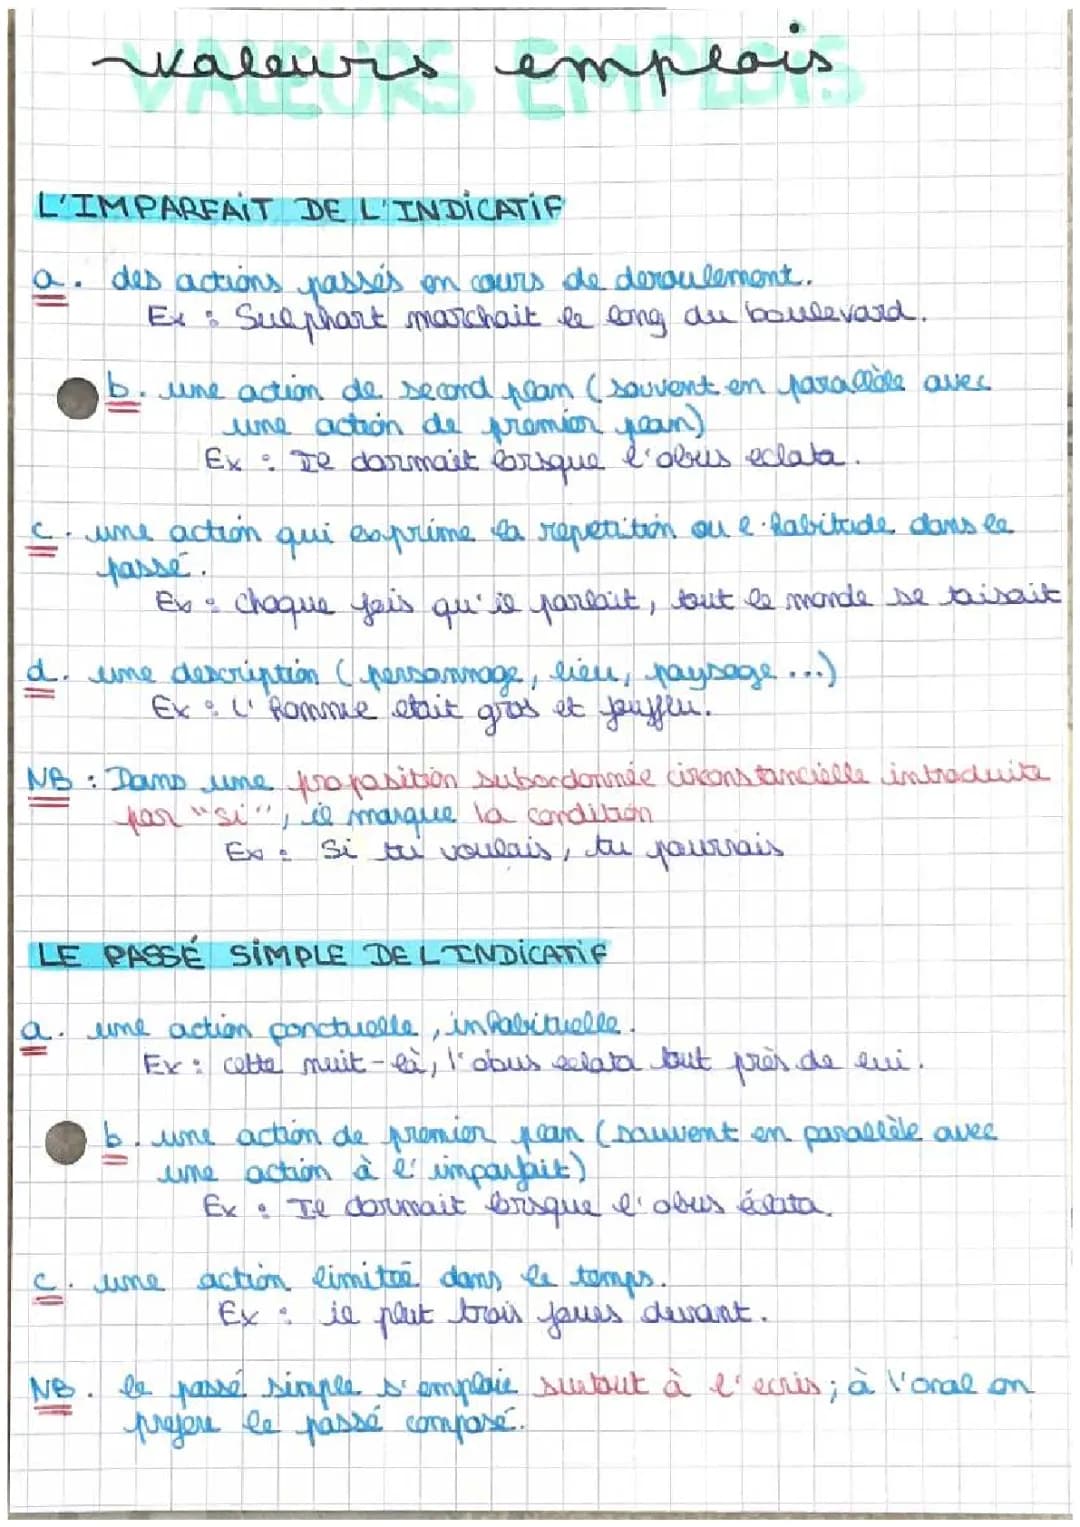 valeurs emplois
VALEURS EMPLOIS
L'IMPARFAIT DE L'INDICATIF
a. des actions passés en cours de deroulement.
Ex : Sulphart marchait le long du boulevard.
b. une action de second plan (souvent en parallèle avec
une action de premier plan)
Ex : Il dormait lorsque l'obus eclata.
c. une action qui exprime la repetition ou l'habitude dans le
passé.
Ex : chaque fois qu'il parlait, tout le monde se taisait
d. une description (personnage, lieu, paysage ...)
Ex : L'homme etait gros et joufflu.
NB : Dans une proposition subordonnée circonstancielle introduite
par "si", il marque la condition
Ex : Si tu voulais, tu pourrais
LE PASSÉ SIMPLE DE L INDICATIF
a. une action ponctuelle, inhabituelle.
Ex : cette nuit-là, l'obus eclata tout près de lui.
b. une action de premier plan (souvent en parallèle avec
une action à l'imparfait)
Ex : Il dormait lorsque l'obus éclata.
c. une action limitée dans le temps.
Ex : il plut trois jours durant.
NB. le passé simple s'emploie surtout à l'ecris ; à l'oral on
prefere le passé composé.